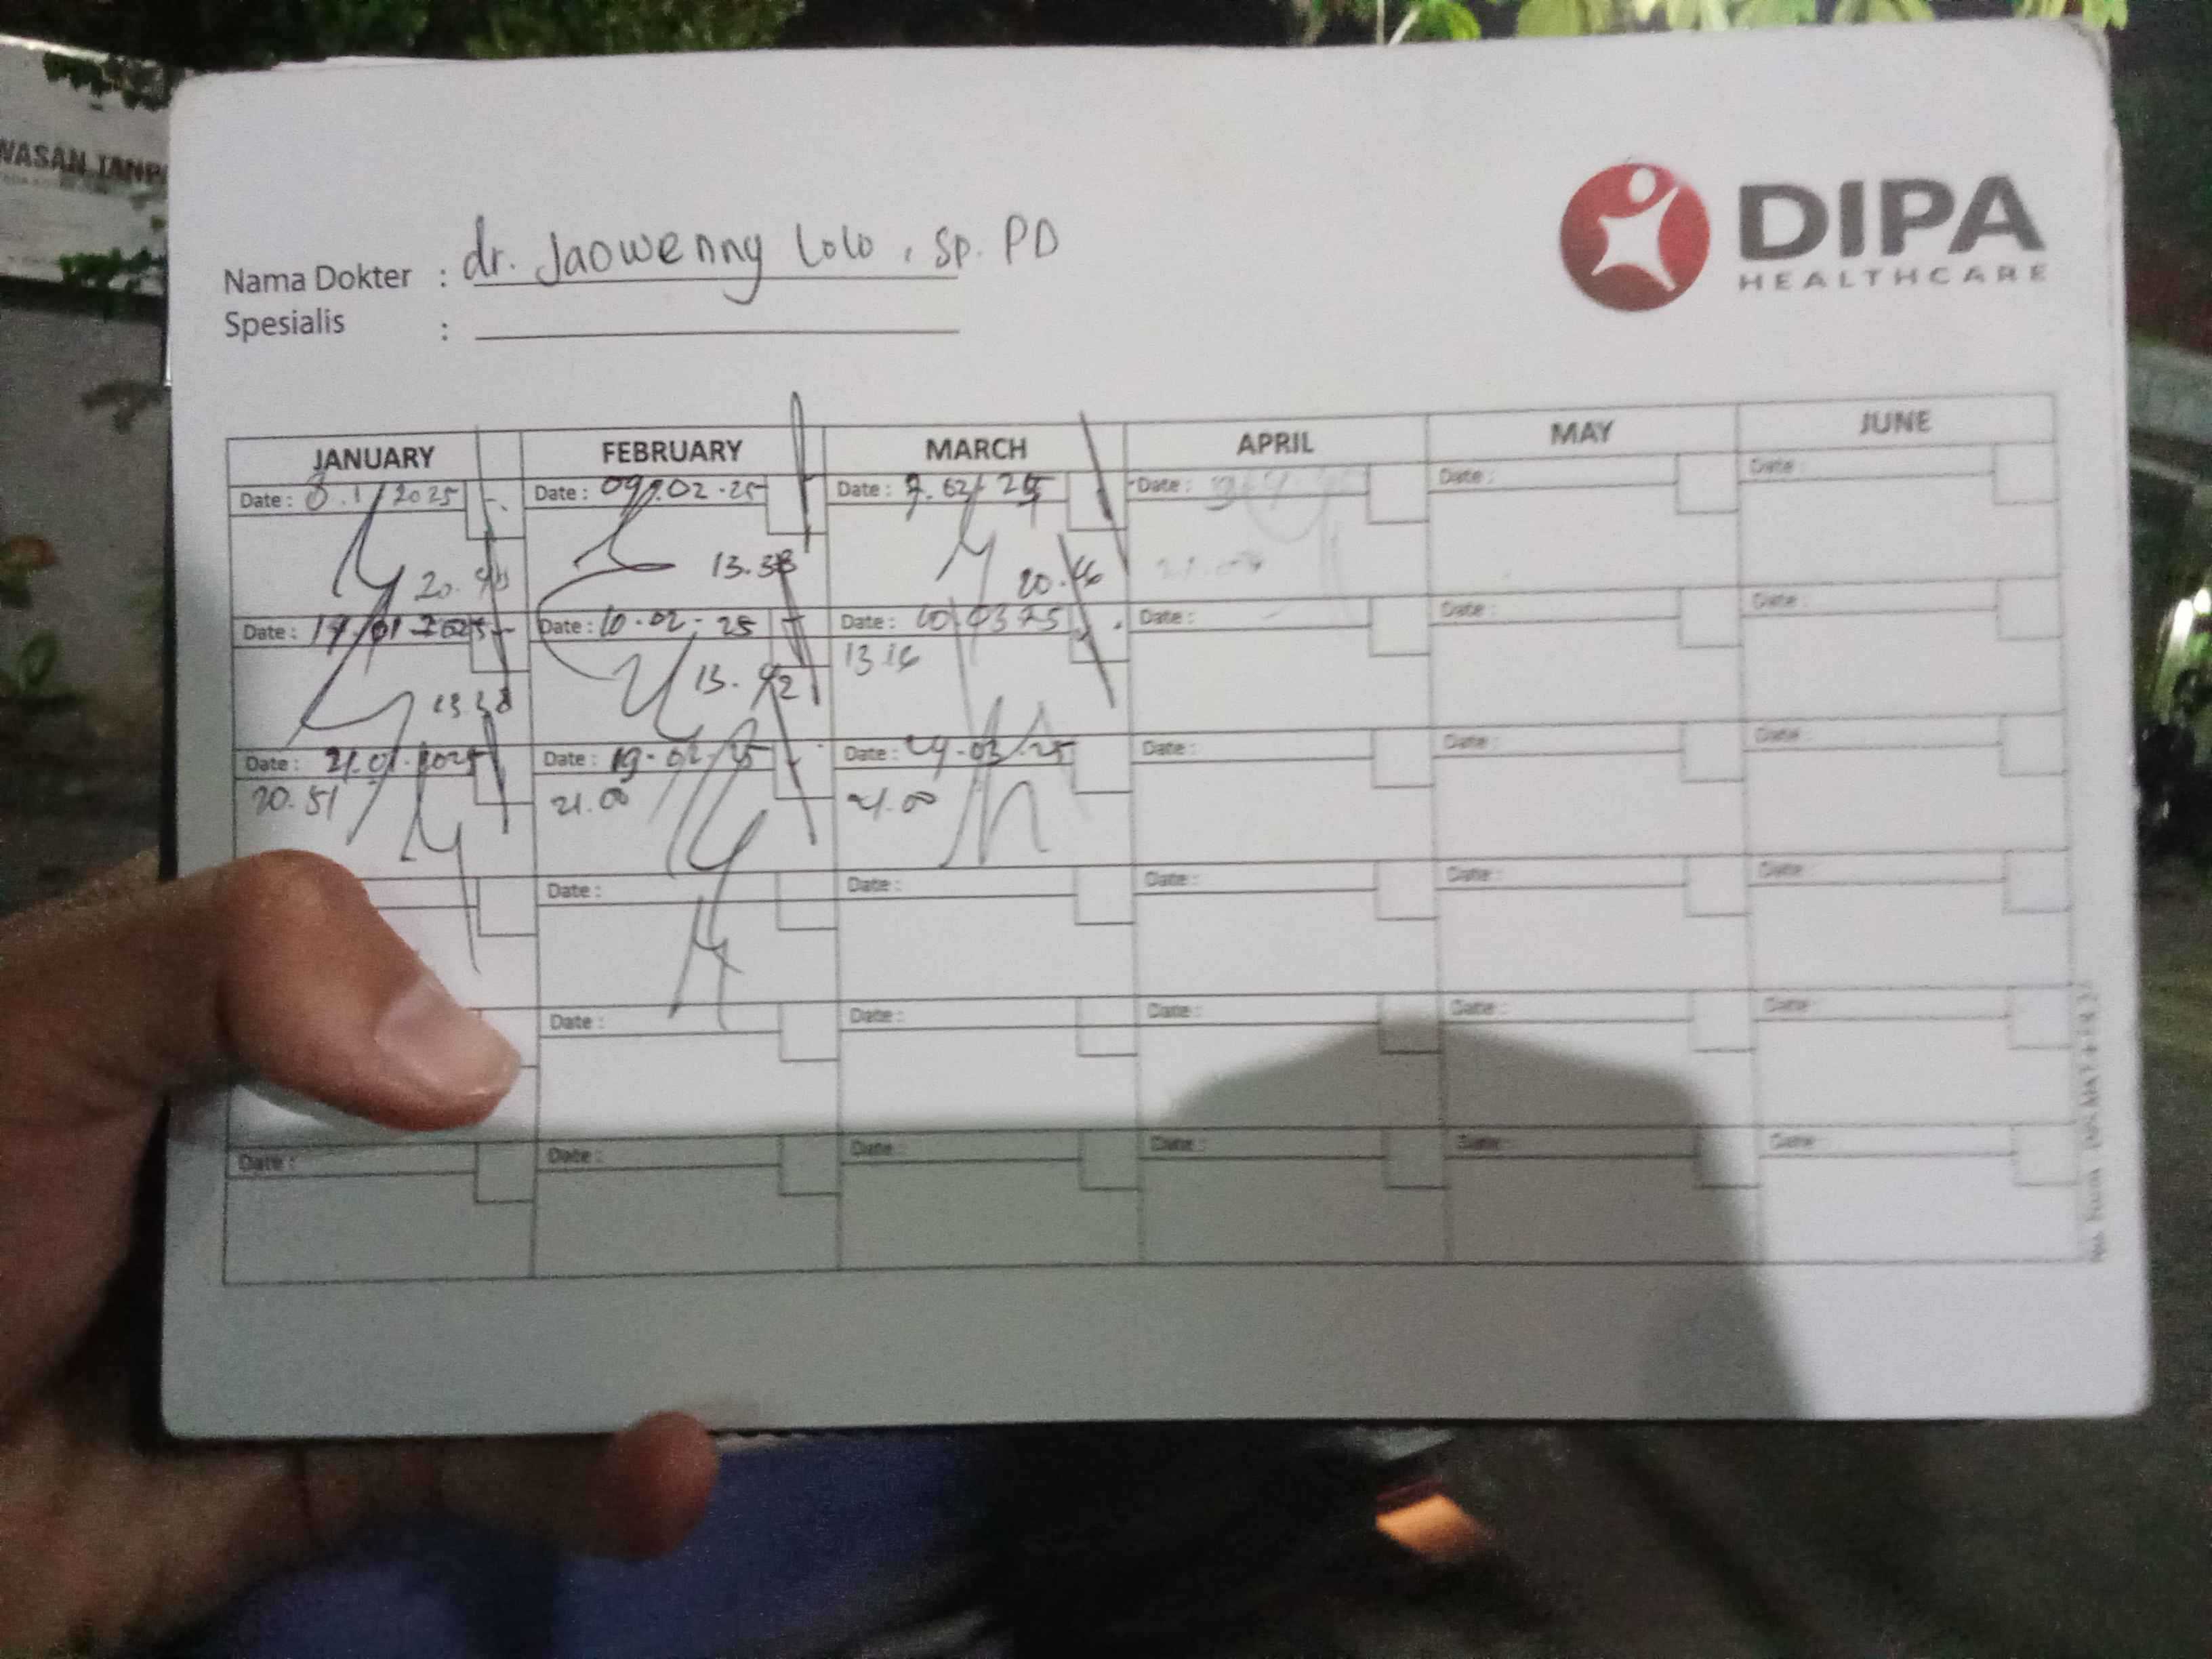 WASAN TANP
DIPA
HEALTHCARE
Nama Dokter : dr. Jaowenny Lolo, Sp. PD
Spesialis :
JANUARY FEBRUARY MARCH APRIL MAY JUNE
Date : 8.1/2025 Date : 09.02.25 Date : Date : Date : Date :
13.38 20.46
Date : Date : 10.02.25 Date : 10.03.25 Date : Date : Date :
13.38 13.42 13.16
Date : 21.01.2025 Date : 19-02-25 Date : 24-03-25 Date : Date : Date :
20.51 21.00 21.00
Date : Date : Date : Date : Date :
Date : Date : Date : Date : Date :
Date : Date : Date : Date : Date : Date :